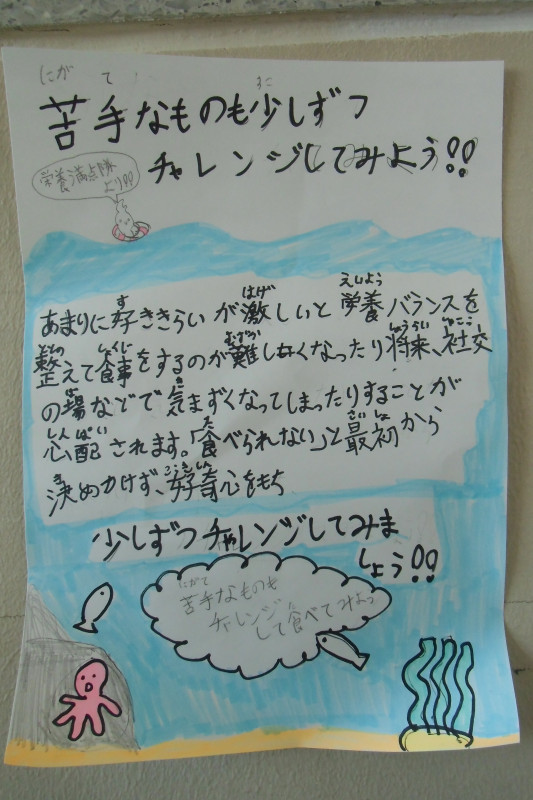 にがて すこ
苦手なものも少しずつ
チャレンジしてみよう!!
栄養満点隊
より!!
すき はげ えいよう
あまりに好ききらいが激しいと栄養バランスを
ととの しょくじ むずか しょうらい しゃこう
整えて食事をするのが難しくなったり将来、社交
ば き
の場などで気まずくなってしまったりすることが
しんぱい た さいしょ
心配されます。「食べられない」と最初から
き こうきしん
決めつけず、好奇心をもち
少しずつチャレンジしてみま
しょう!!
にがて
苦手なものも
チャレンジ
して食べてみよっ